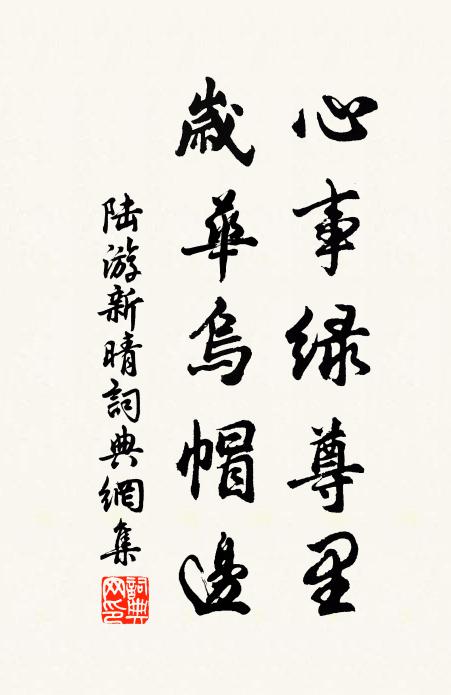 心事緑尊里
歲華烏帽邊
陸游新晴詞典網集
詞典网印